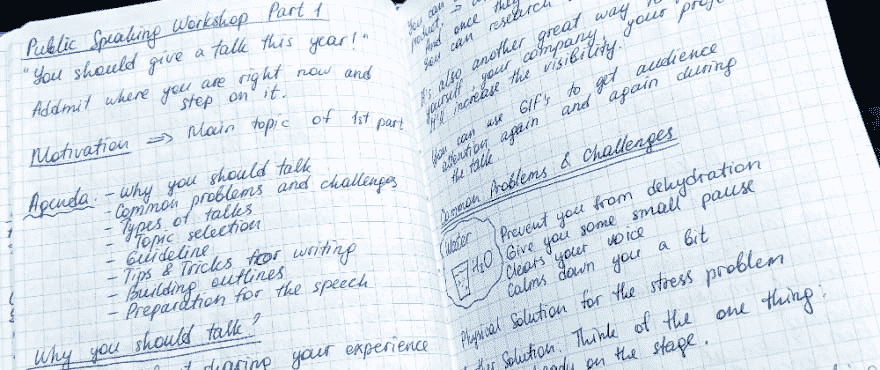 Public Speaking Workshop Part 1
"You should give a talk this year!"
Addmit where you are right now and
step on it.
Motivation => Main topic of 1st part
Agenda. - Why you should talk
- Common problems and challenges
- Types of talks
- Topic selection
- Guideline
- Tips & Tricks for writing
- Building outlines
- Preparation for the speech
Why you should talk?
sharing your experience
You can
product.
And once they
you can research
It's also another great way to
yourself, your company, your
It'll increase the visibility.
You can use GIF's to get audience
attention again and again during
the talk
Common Problems & Challenges
Water
H2O
Prevent you from dehydration
Give you some small pause
Clears your voice
Calms down you a bit
Physical solution for the stress problem
solution. Think of the one thing:
on the stage.